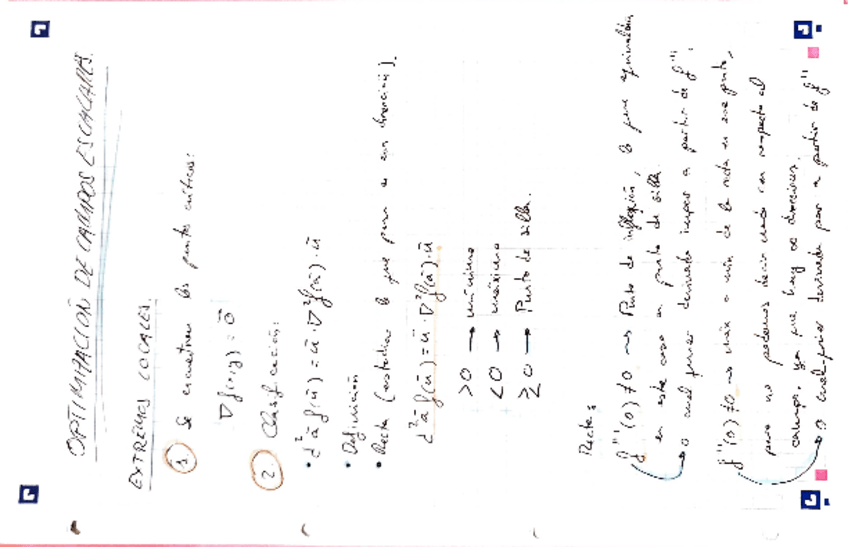 OPTIMIZACIÓN DE CAMPOS ESCALARES.
EXTREMOS LOCALES.
1. Se encuentran los puntos críticos:
∇f(x,y) = 0̄
2. Clasificación:
• d²ā f(ū) = ū · ∇²f(ā) · ū
• Definición
• Recta (estudiar lo que pasa en esa dirección).
d²ā f(ū) = ū · ∇²f(ā) · ū
>0 → mínimo
<0 → máximo
≷0 → Punto de silla.
Recta:
f'''(0) ≠ 0 → Punto de inflexión, lo que equivaldría
en este caso a punto de silla.
o cualquier derivada impar a partir de f'''.
f''(0) ≠ 0 → máx o mín de la recta en ese punto,
pero no podemos decir nada con respecto al
campo, ya que hay ∞ direcciones.
o cualquier derivada par a partir de f''